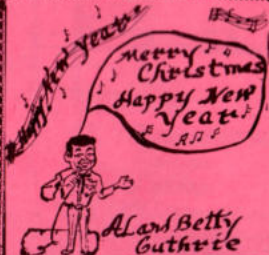 A Happy New Year
Merry
Christmas
Happy New
Year
Al and Betty
Guthrie